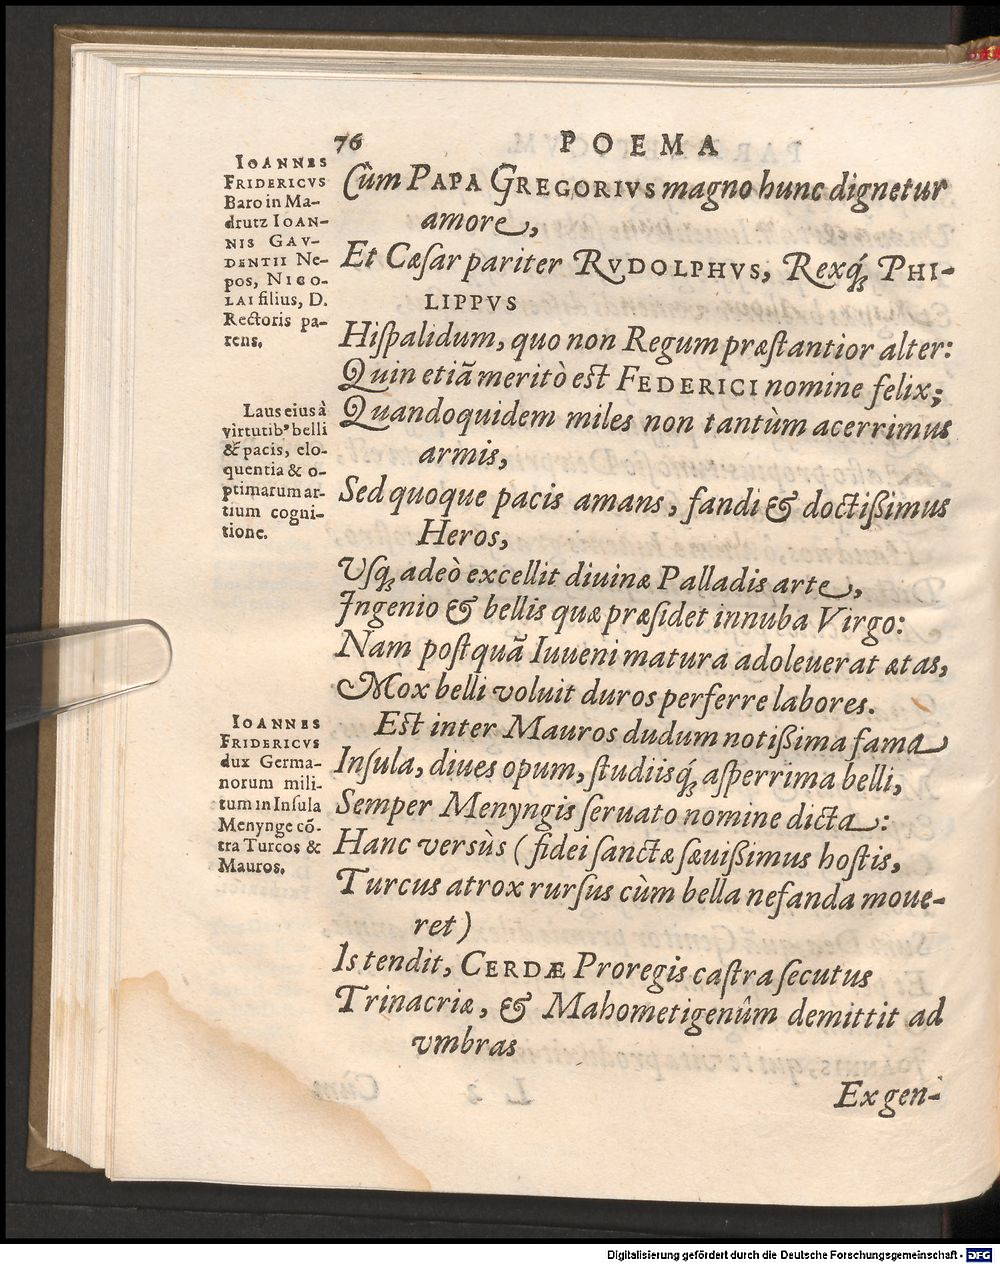 76 POEMA
IOANNES
FRIDERICVS
Baro in Ma-
drutz IOAN-
NIS GAV-
DENTII Ne-
pos, NICO-
LAI filius, D.
Rectoris pa-
rens.
Cùm PAPA GREGORIVS magno hunc dignetur
amore,
Et Cæſar pariter RVDOLPHVS, Rexq́; PHI-
LIPPVS
Hiſpalidum, quo non Regum præſtantior alter:
Quin etiã meritò est FEDERICI nomine felix;
Laus eius à
virtutibꝰ belli
& pacis, elo-
quentia & o-
ptimarum ar-
tium cogni-
tione.
Quandoquidem miles non tantùm acerrimus
armis,
Sed quoque pacis amans, fandi & doctißimus
Heros,
Vſq; adeò excellit diuinæ Palladis arte,
Ingenio & bellis quæ præſidet innuba Virgo:
Nam poſtquã Iuueni matura adoleuerat ætas,
Mox belli voluit duros perferre labores.
IOANNES
FRIDERICVS
dux Germa-
norum mili-
tum in Inſula
Menynge cõ-
tra Turcos &
Mauros.
Est inter Mauros dudum notißima fama
Inſula, diues opum, ſtudiisq́; aſperrima belli,
Semper Menyngis ſeruato nomine dicta:
Hanc versùs (fidei ſanctæ ſæuißimus hoſtis,
Turcus atrox rurſus cùm bella nefanda moue-
ret)
Is tendit, CERDÆ Proregis caſtra ſecutus
Trinacriæ, & Mahometigenûm demittit ad
vmbras
Ex gen-
Digitalisierung gefördert durch die Deutsche Forschungsgemeinschaft - DFG